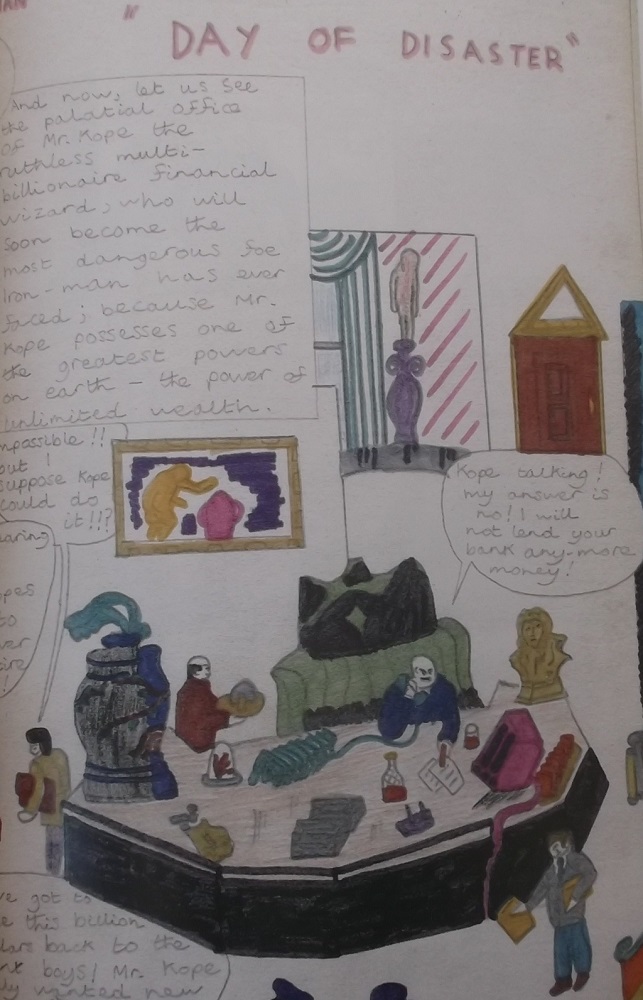 "DAY OF DISASTER"
And now, let us see
the palatial office
of Mr. Kope the
ruthless multi-
billionaire financial
wizard; who will
soon become the
most dangerous foe
Iron-man has ever
faced; because Mr.
Kope possesses one of
the greatest powers
on earth - the power of
unlimited wealth.
!!
but I
suppose Kope
could do
it!!?
Kope talking!
my answer is
no! I will
not lend your
bank any-more
money!
got to
this billion
back to the
boys! Mr. Kope
wanted new